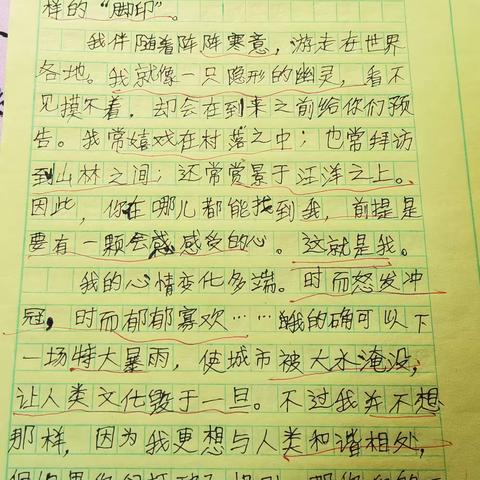 样的“脚印”。
我伴随着阵阵寒意，游走在世界
各地。我就像一只隐形的幽灵，看不
见摸不着，却会在到来之前给你们预
告。我常嬉戏在村落之中；也常拜访
到山林之间；还常赏景于汪洋之上。
因此，你在哪儿都能找到我，前提是
要有一颗会感受的心。这就是我。
我的心情变化多端。时而怒发冲
冠，时而郁郁寡欢……我的确可以下
一场特大暴雨，使城市被大水淹没，
让人类文化毁于一旦。不过我并不想
那样，因为我更想与人类和谐相处，